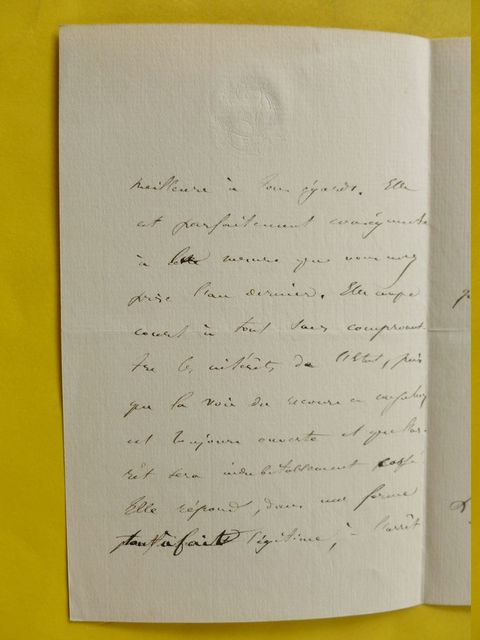 meilleure à tous égards. Elle
est parfaitement conséquente
à la mesure que nous avons
prise l'an dernier. Elle
à tout sans compromet-
tre les intérêts de l'Etat, puis
que la voie du recours en
est toujours ouverte et que l'ar-
rêt sera indubitablement cassé.
Elle répond, dans une forme
tout à fait légitime, à l'arrêt